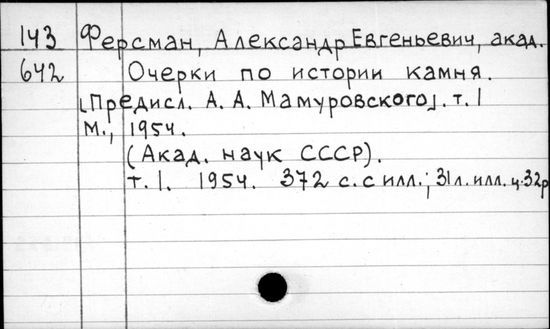 143 Ферсман, Александр Евгеньевич, акад.
642 Очерки по истории камня.
[Предисл. А. А. Мамуровского]. т. 1
М., 1954.
(Акад. наук СССР).
т. 1. 1954. 372 с. с илл.; 31 л. илл. ц. 32р